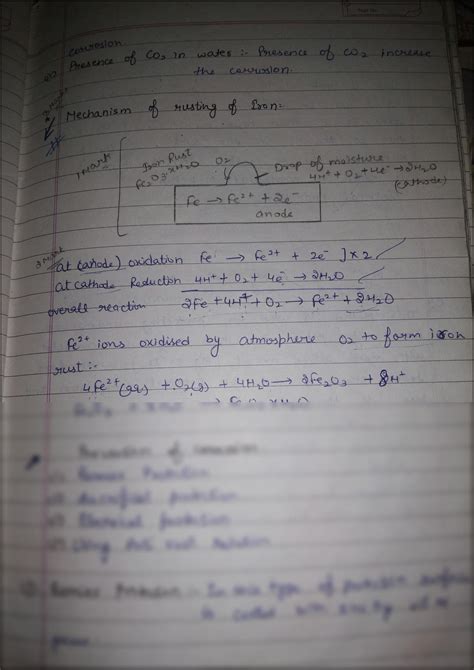 corrosion
Presence of CO2 in water :- Presence of CO2 increase
the corrosion.
Mechanism of rusting of Iron:-
1 Mark
Iron Rust O2 Drop of moisture
Fe2O3.xH2O 4H+ + O2 + 4e- → 2H2O
(cathode)
Fe → Fe2+ + 2e-
anode
at (anode) oxidation Fe → Fe2+ + 2e- ] x 2
at cathode Reduction 4H+ + O2 + 4e- → 2H2O
overall reaction 2Fe + 4H+ + O2 → Fe2+ + 2H2O
Fe2+ ions oxidised by atmosphere O2 to form iron
rust :-
4Fe2+(aq) + O2(g) + 4H2O → 2Fe2O3 + 8H+
Prevention of corrosion
Barrier Protection
Sacrificial protection
Electrical protection
Using Anti rust solution
Barrier Protection :- In this type of protection surface
is coated with